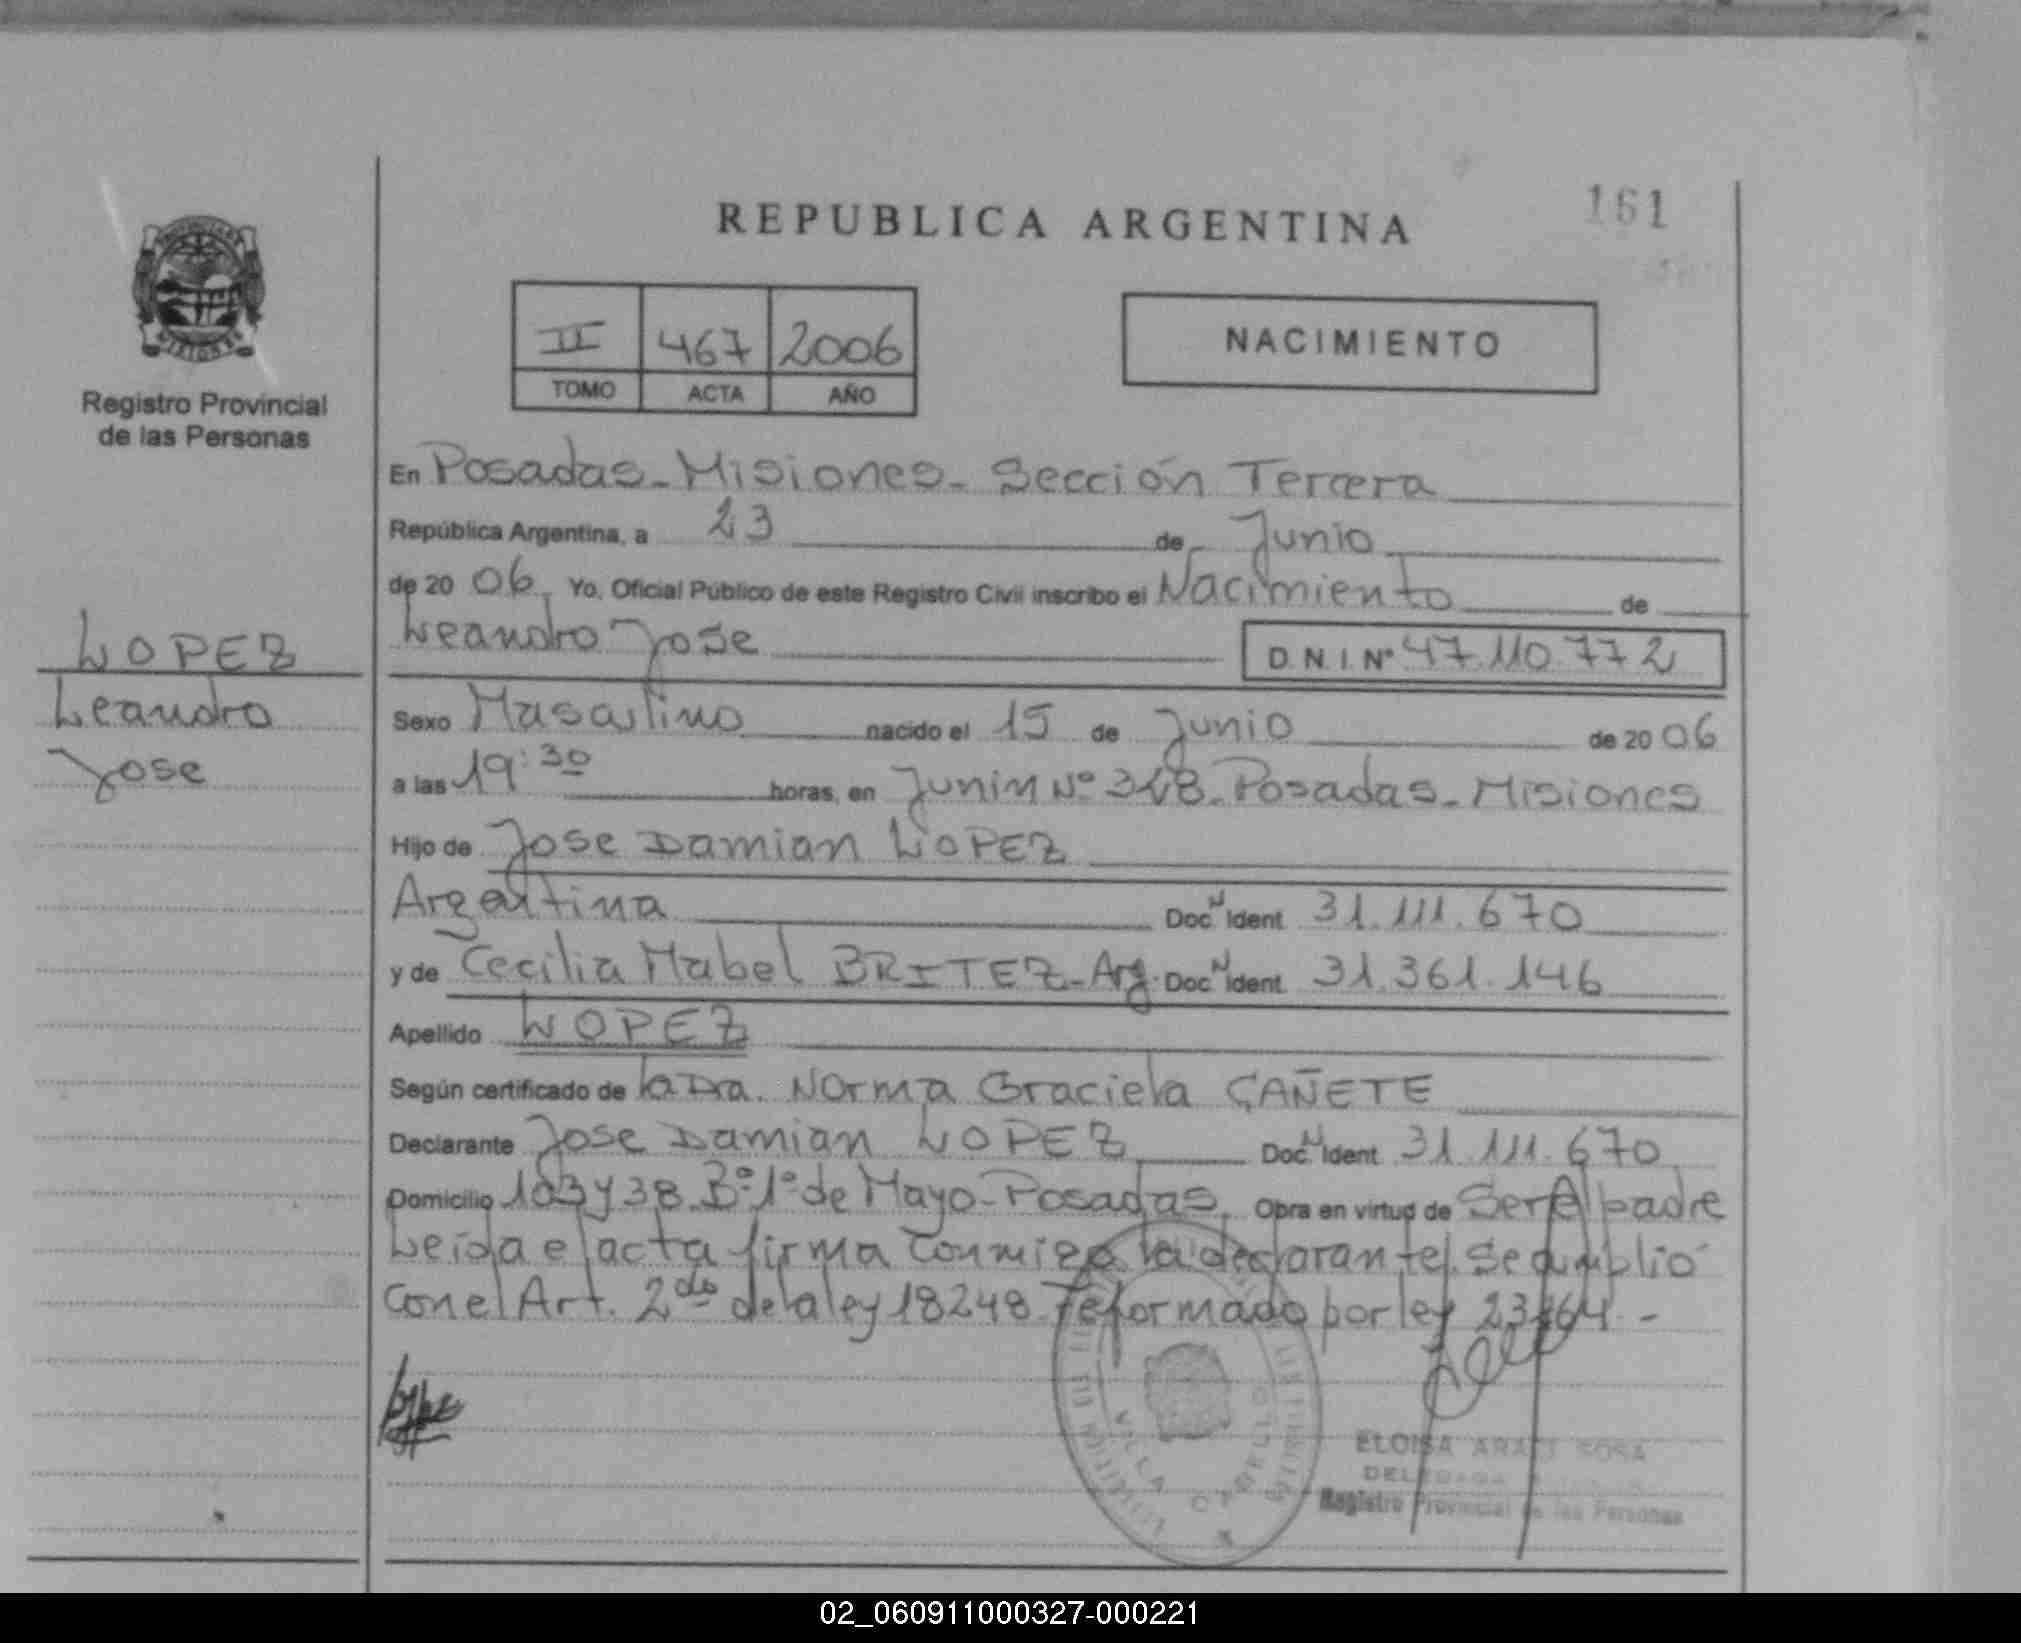 REPUBLICA ARGENTINA
161
Registro Provincial
de las Personas
II 467 2006
TOMO ACTA AÑO
NACIMIENTO
LOPEZ
Leandro
Jose
En Posadas - Misiones - Sección Tercera
República Argentina, a 23 de Junio
de 20 06. Yo, Oficial Público de este Registro Civil inscribo el Nacimiento de
Leandro Jose D.N.I. Nº 47.110.772
Sexo Masculino nacido el 15 de Junio de 20 06
a las 19:30 horas, en Junin Nº 348 - Posadas - Misiones
Hijo de Jose Damian LOPEZ
Argentina Doc N Ident 31.111.670
y de Cecilia Mabel BRITEZ - Arg. Doc N Ident 31.361.146
Apellido LOPEZ
Según certificado de la Dra. Norma Graciela CAÑETE
Declarante Jose Damian LOPEZ Doc N Ident 31.111.670
Domicilio 103 y 38. Bº 1º de Mayo - Posadas. Obra en virtud de Ser El padre
Leida el acta firma Conmigo la declarante. Se cumplio
Con el Art. 2do de la ley 18248 reformado por ley 23264. -
VILLA CABELLO
ELOISA ARACI SOSA
DELEGADA
Registro Provincial de las Personas
02_060911000327-000221